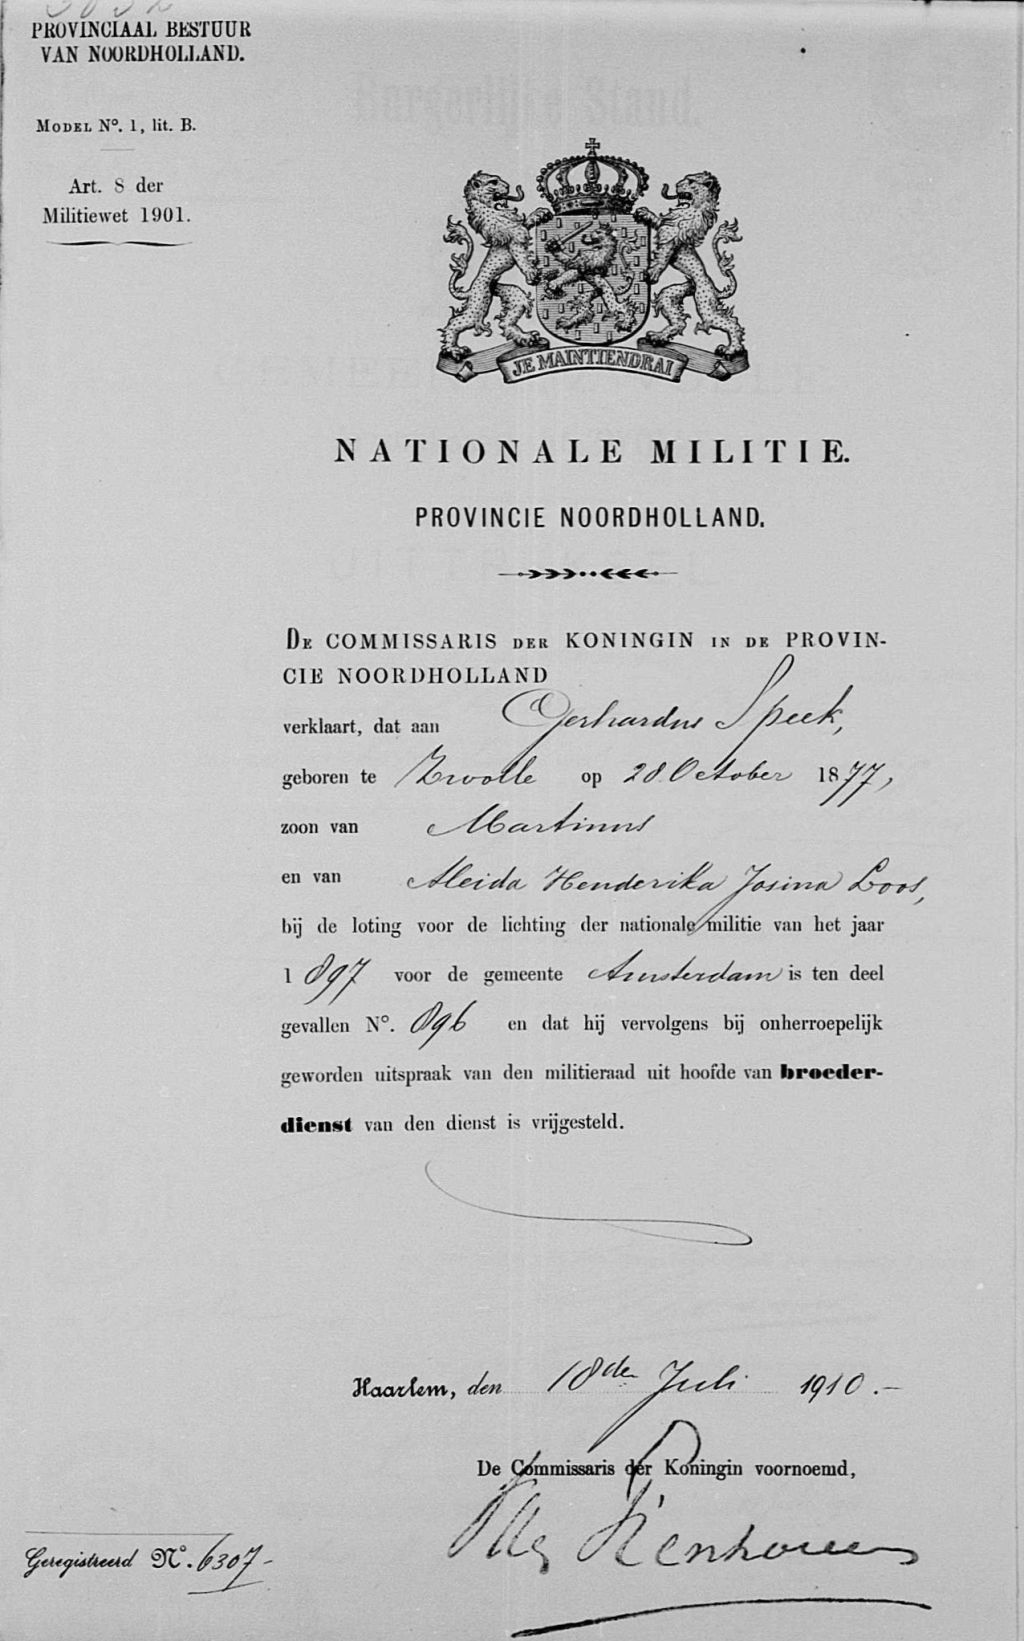 PROVINCIAAL BESTUUR
VAN NOORDHOLLAND.
MODEL No. 1, lit. B.
Art. 8 der
Militiewet 1901.
JE MAINTIENDRAI
NATIONALE MILITIE.
PROVINCIE NOORDHOLLAND.
DE COMMISSARIS DER KONINGIN IN DE PROVIN-
CIE NOORDHOLLAND
verklaart, dat aan Gerhardus Speek,
geboren te Zwolle op 28 October 1877,
zoon van Martinus
en van Aleida Henderika Josina Loos,
bij de loting voor de lichting der nationale militie van het jaar
1897 voor de gemeente Amsterdam is ten deel
gevallen No. 896 en dat hij vervolgens bij onherroepelijk
geworden uitspraak van den militieraad uit hoofde van broeder-
dienst van den dienst is vrijgesteld.
Haarlem, den 18den Juli 1910.-
De Commissaris der Koningin voornoemd,
Geregistreerd No. 6307-